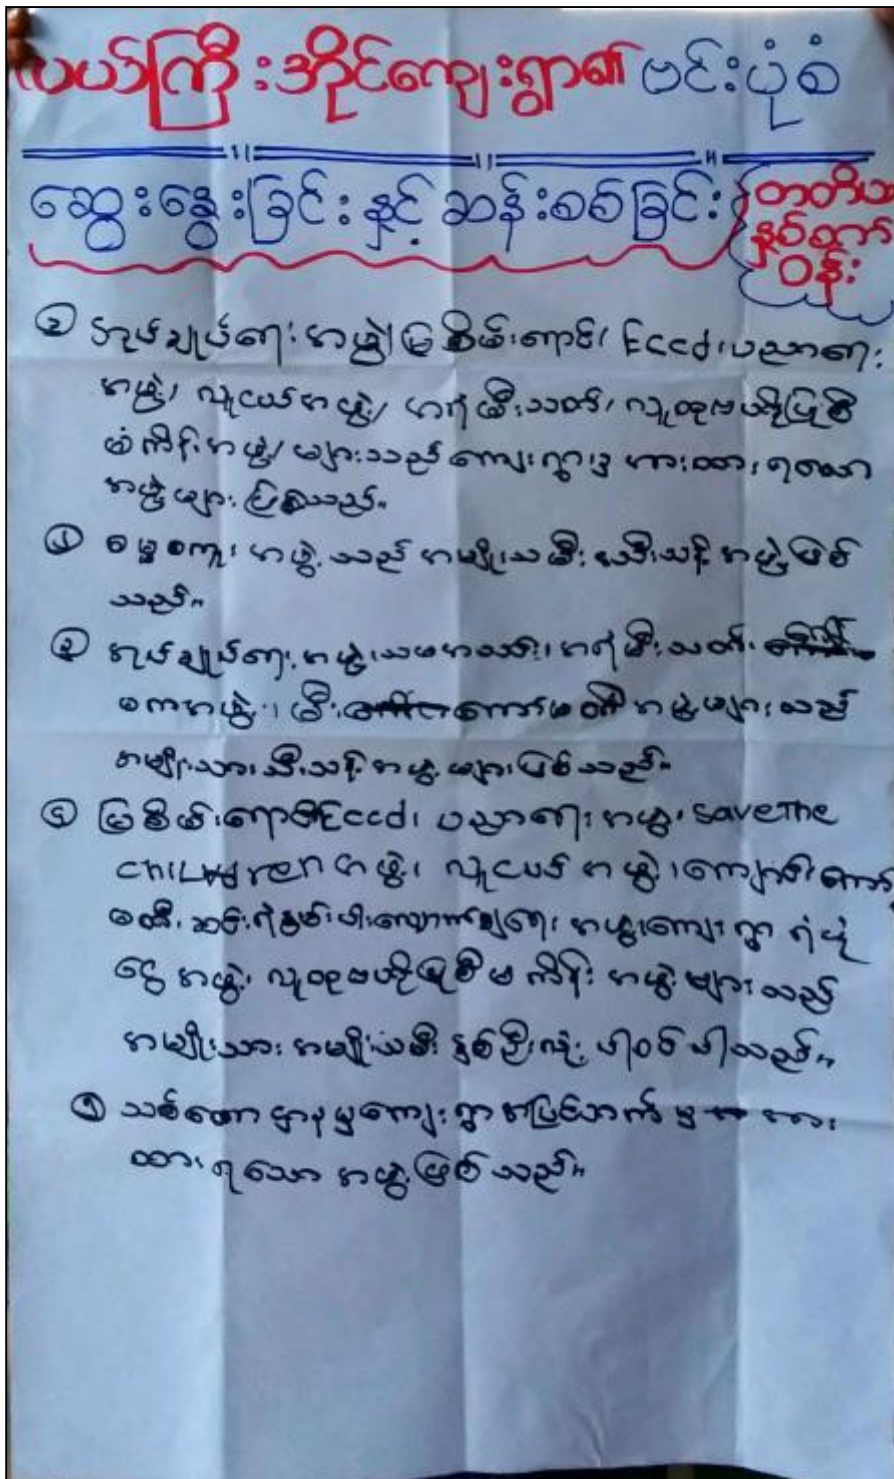 ကြီးအိုင်ကျေးရွာ၏ ဗင်းပုံစံ
ဆွေးနွေးခြင်း နှင့် ဆန်းစစ်ခြင်း
တတိယ
နှစ်ပတ်
ဝန်း
အုပ်ချုပ်ရေး အဖွဲ့၊ မြစိမ်းရောင်၊ Eccd၊ ပညာရေး
အဖွဲ့၊ လူငယ်အဖွဲ့၊ အရံမီးသတ်၊ လူထုဗဟိုပြုစီ
မံကိန်းအဖွဲ့၊ များသည် ကျေးရွာ၌ ထား ရသော
အဖွဲ့များ ဖြစ်သည်။
၂ အဖွဲ့သည် အမျိုးသမီး သီးသန့် အဖွဲ့ဖြစ်
သည်။
၃ အုပ်ချုပ်ရေး အဖွဲ့၊ အရံမီးသတ်၊
အဖွဲ့များသည်
အမျိုးသား သီးသန့် အဖွဲ့များဖြစ်သည်။
၄ မြစိမ်းရောင် Eccd၊ ပညာရေး အဖွဲ့၊ save The
children အဖွဲ့၊ လူငယ် အဖွဲ့၊ ကျောင်းကော်
မတီ၊ ဆင်းရဲနွမ်းပါးလျှော့ချရေး အဖွဲ့၊ ကျေးရွာ ရံပုံ
ငွေ အဖွဲ့၊ လူထုဗဟိုပြုစီမံကိန်း အဖွဲ့များသည်
အမျိုးသား အမျိုးသမီး နှစ်ဦးလုံး ပါဝင်ပါသည်။
၅ သစ်တောဌာနမှ ကျေးရွာ အပြင်ဘက်မှ
ထား ရသော အဖွဲ့ဖြစ်သည်။